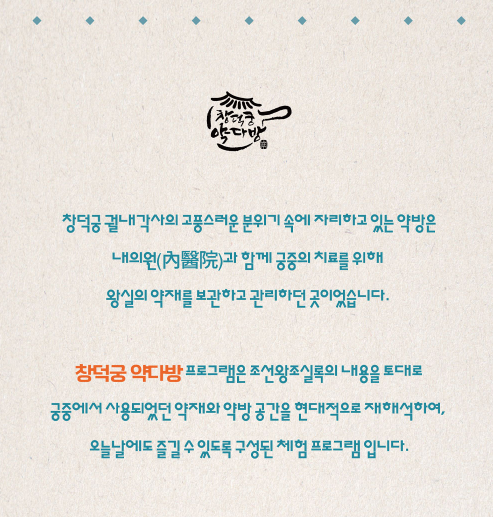 창덕궁
약다방
창덕궁 궐내각사의 고풍스러운 분위기 속에 자리하고 있는 약방은
내의원(內醫院)과 함께 궁중의 치료를 위해
왕실의 약재를 보관하고 관리하던 곳이었습니다.
창덕궁 약다방 프로그램은 조선왕조실록의 내용을 토대로
궁중에서 사용되었던 약재와 약방 공간을 현대적으로 재해석하여,
오늘날에도 즐길 수 있도록 구성된 체험 프로그램 입니다.